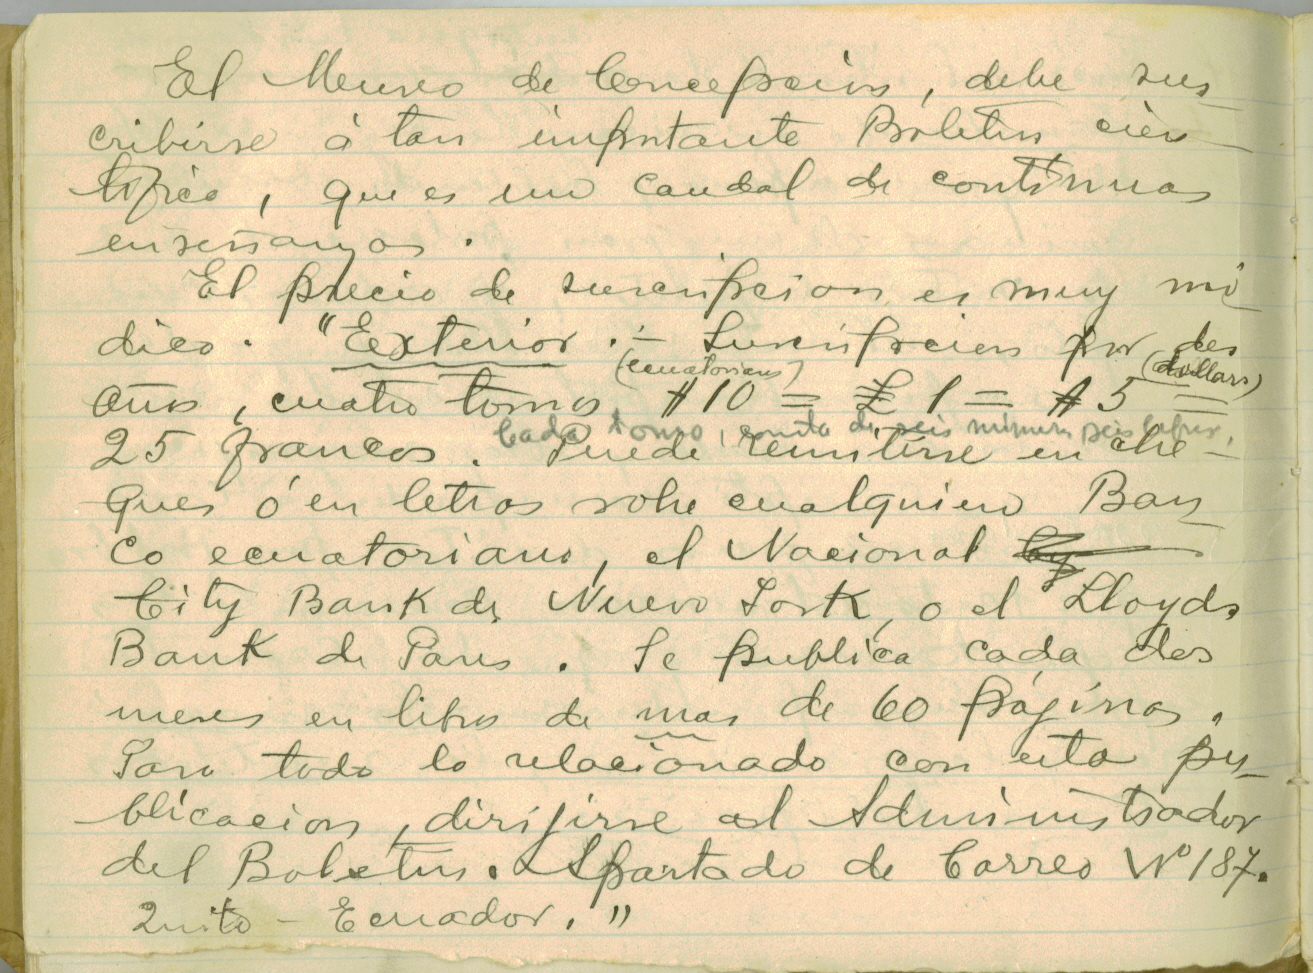 El Museo de Concepcion, debe sus
cribirse á tan importante Boletin cien
tifico, que es un caudal de continuas
enseñanzas.
El precio de suscripcion es muy mó
dico. "Exterior :- Suscripcion por dos
(ecuatorianos) (dollars)
años, cuatro tomos $10 = £ 1 = $5 =
Cada tomo, consta de seis números
25 francos. Puede remitirse en che-
ques ó en letras sobre cualquiera Ban
co ecuatoriano, el Nacional
City Bank de Nueva York, o el Lloyds
Bank de Paris. Se publica cada dos
meses en libros de mas de 60 páginas.
Para todo lo relacionado con esta pu-
blicacion, dirijirse al Administrador
del Boletin. Apartado de Correo Nº 187.
Quito - Ecuador."